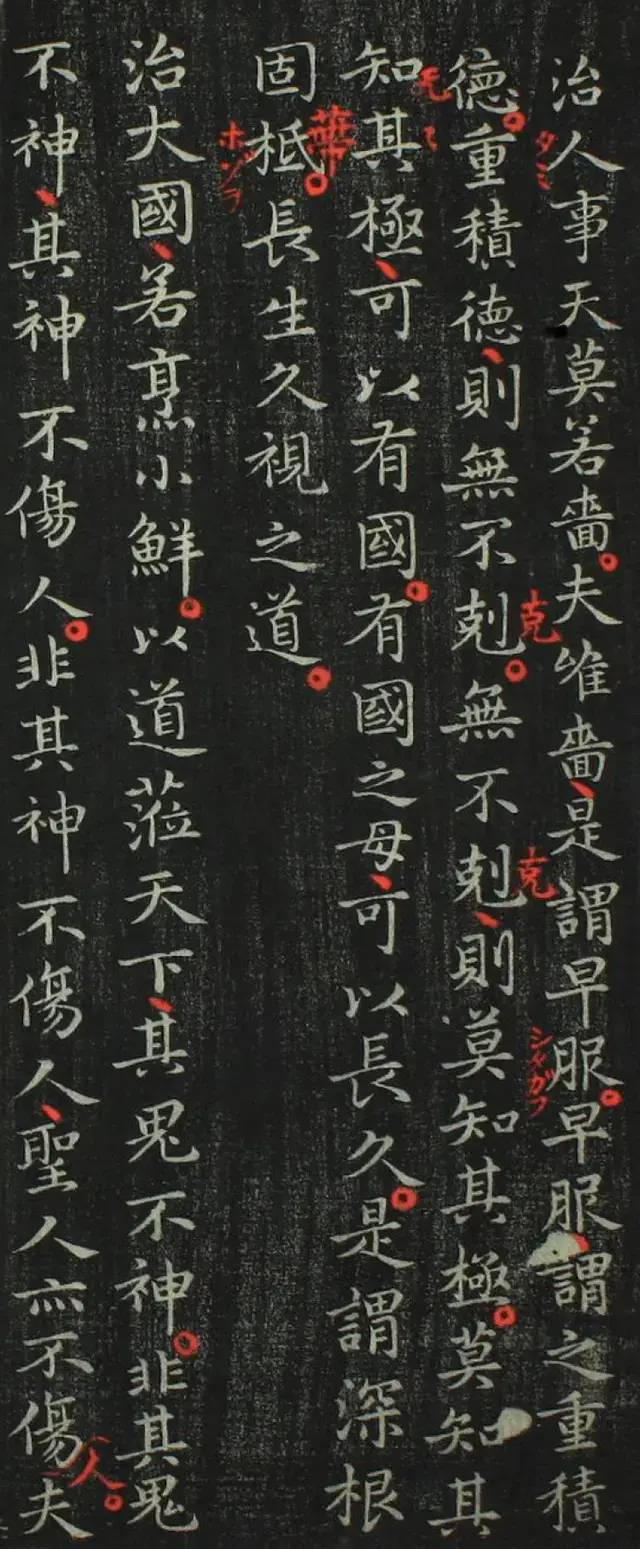 治人事天莫若嗇夫唯嗇是謂早服早服謂之重積
タミ
克
克
シタガフ
徳重積徳則無不剋無不剋則莫知其極莫知其
知其極可以有國有國之母可以長久是謂深根
固柢長生久視之道
蔕
ホゾヲ
治大國若烹小鮮以道莅天下其鬼不神非其鬼
不神其神不傷人非其神不傷人聖人亦不傷夫
人